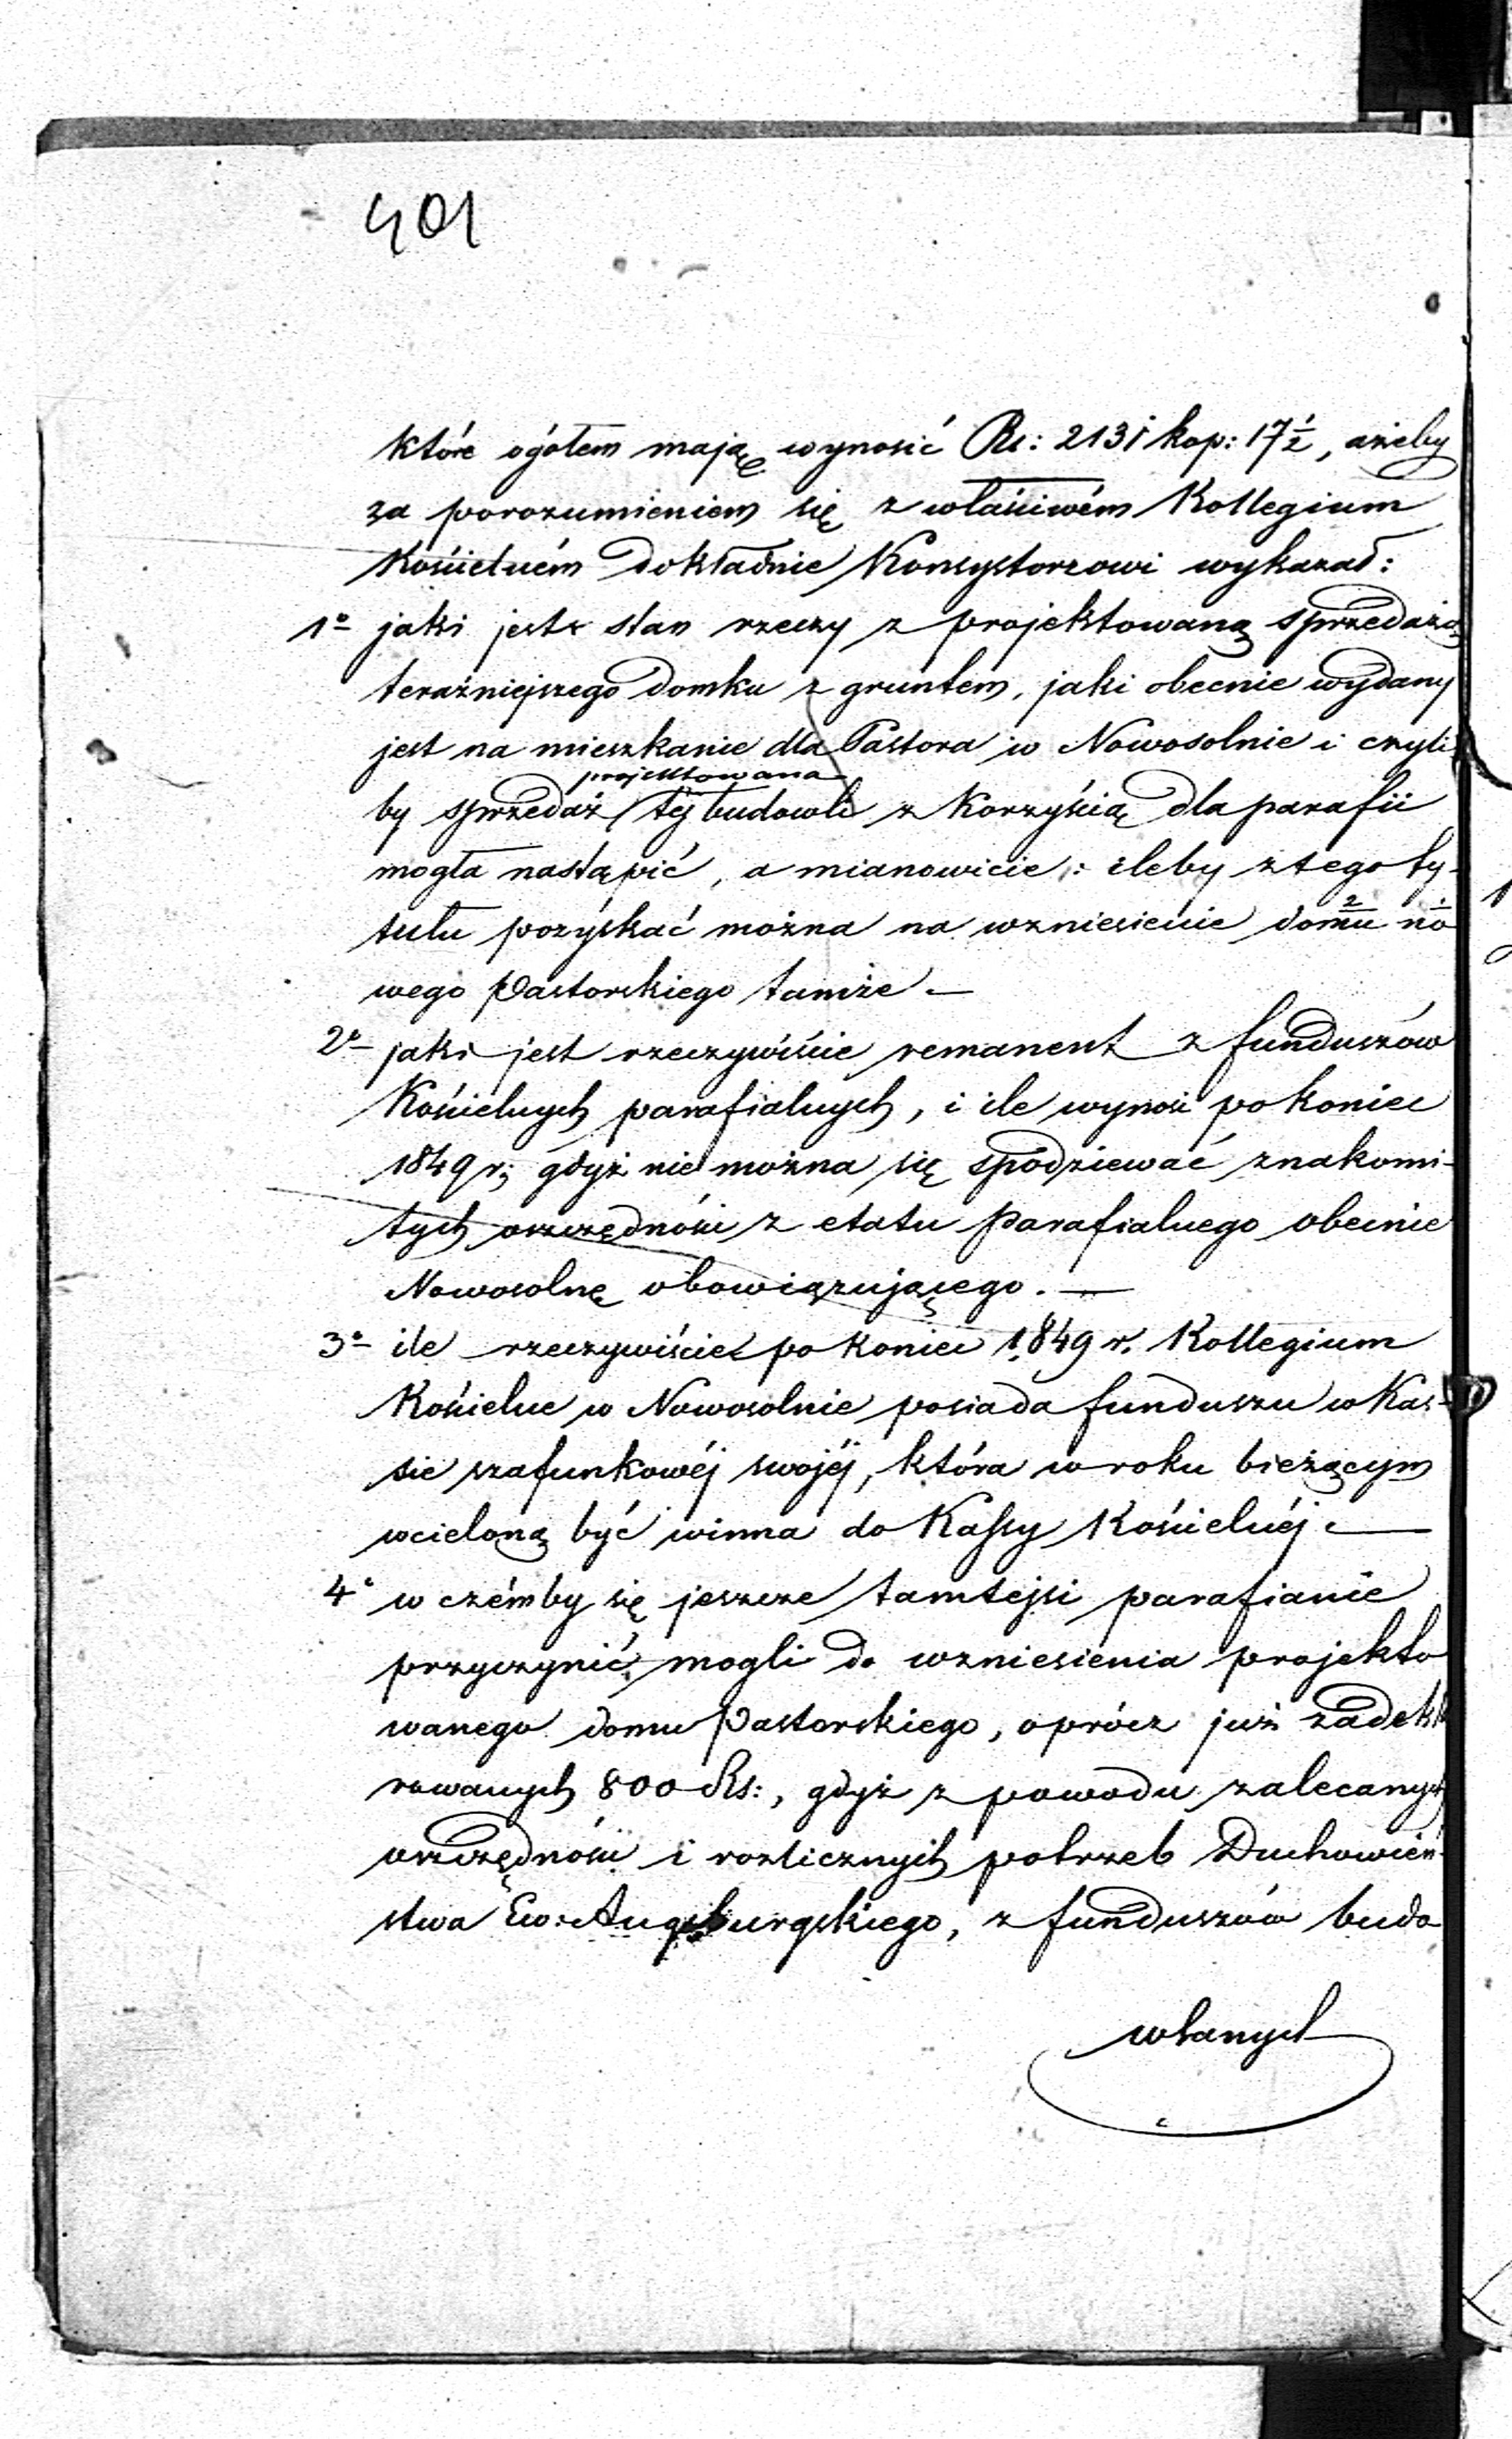 401
które ogółem mają wynosić Rs: 2131 kop: 17½, ażeby
za porozumieniem się z właściwém Kollegium
Kościelném dokładnie Konsystorzowi wykazał:
1º jaki jest stan rzeczy z projektowaną sprzedażą
teraźniejszego domku z gruntem, jaki obecnie wydany
jest na mieszkanie dla Pastora w Nowosolnie i czyli
projektowana
by sprzedaż téj budowli z korzyścią dla parafii
mogła nastąpić, a mianowicie: ileby z tego ty-
2 1
tułu pozyskać można na wzniesienie domu no
wego Pastorskiego tamże —
2º jaki jest rzeczywiście remanent z funduszów
Kościelnych parafialnych, i ile wynosi po koniec
1849 r; gdyż nie można się spodziewać znakomi-
tych oszczędności z etatu parafialnego obecnie
Nowosolnę obowiązującego. —
3º ile rzeczywiście po koniec 1849 r. Kollegium
Kościelne w Nowosolnie posiada funduszu w Kas-
sie szafunkowéj swojéj, która w roku bieżącym
wcieloną być winna do Kassy Kościelnéj. —
4º w czémby się jeszcze tamtejsi parafianie
przyczynić mogli do wzniesienia projekto
wanego domu Pastorskiego, oprócz już zadekla
rowanych 800 Rs:, gdyż z powodu zalecanych
oszczędności i rozlicznych potrzeb Duchowień-
stwa Ew: Augsburgskiego, z funduszów budo
wlanych